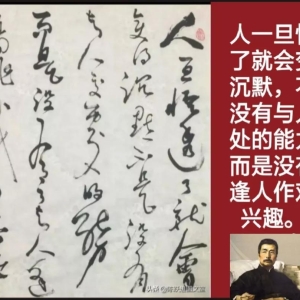 人一旦悟透了就会
变得沉默不是没有
与人交
的能力
而是没有了与人逢
人一旦悟
了就会变
沉默，不
没有与人
处的能力
而是没有
逢人作戏
兴趣。